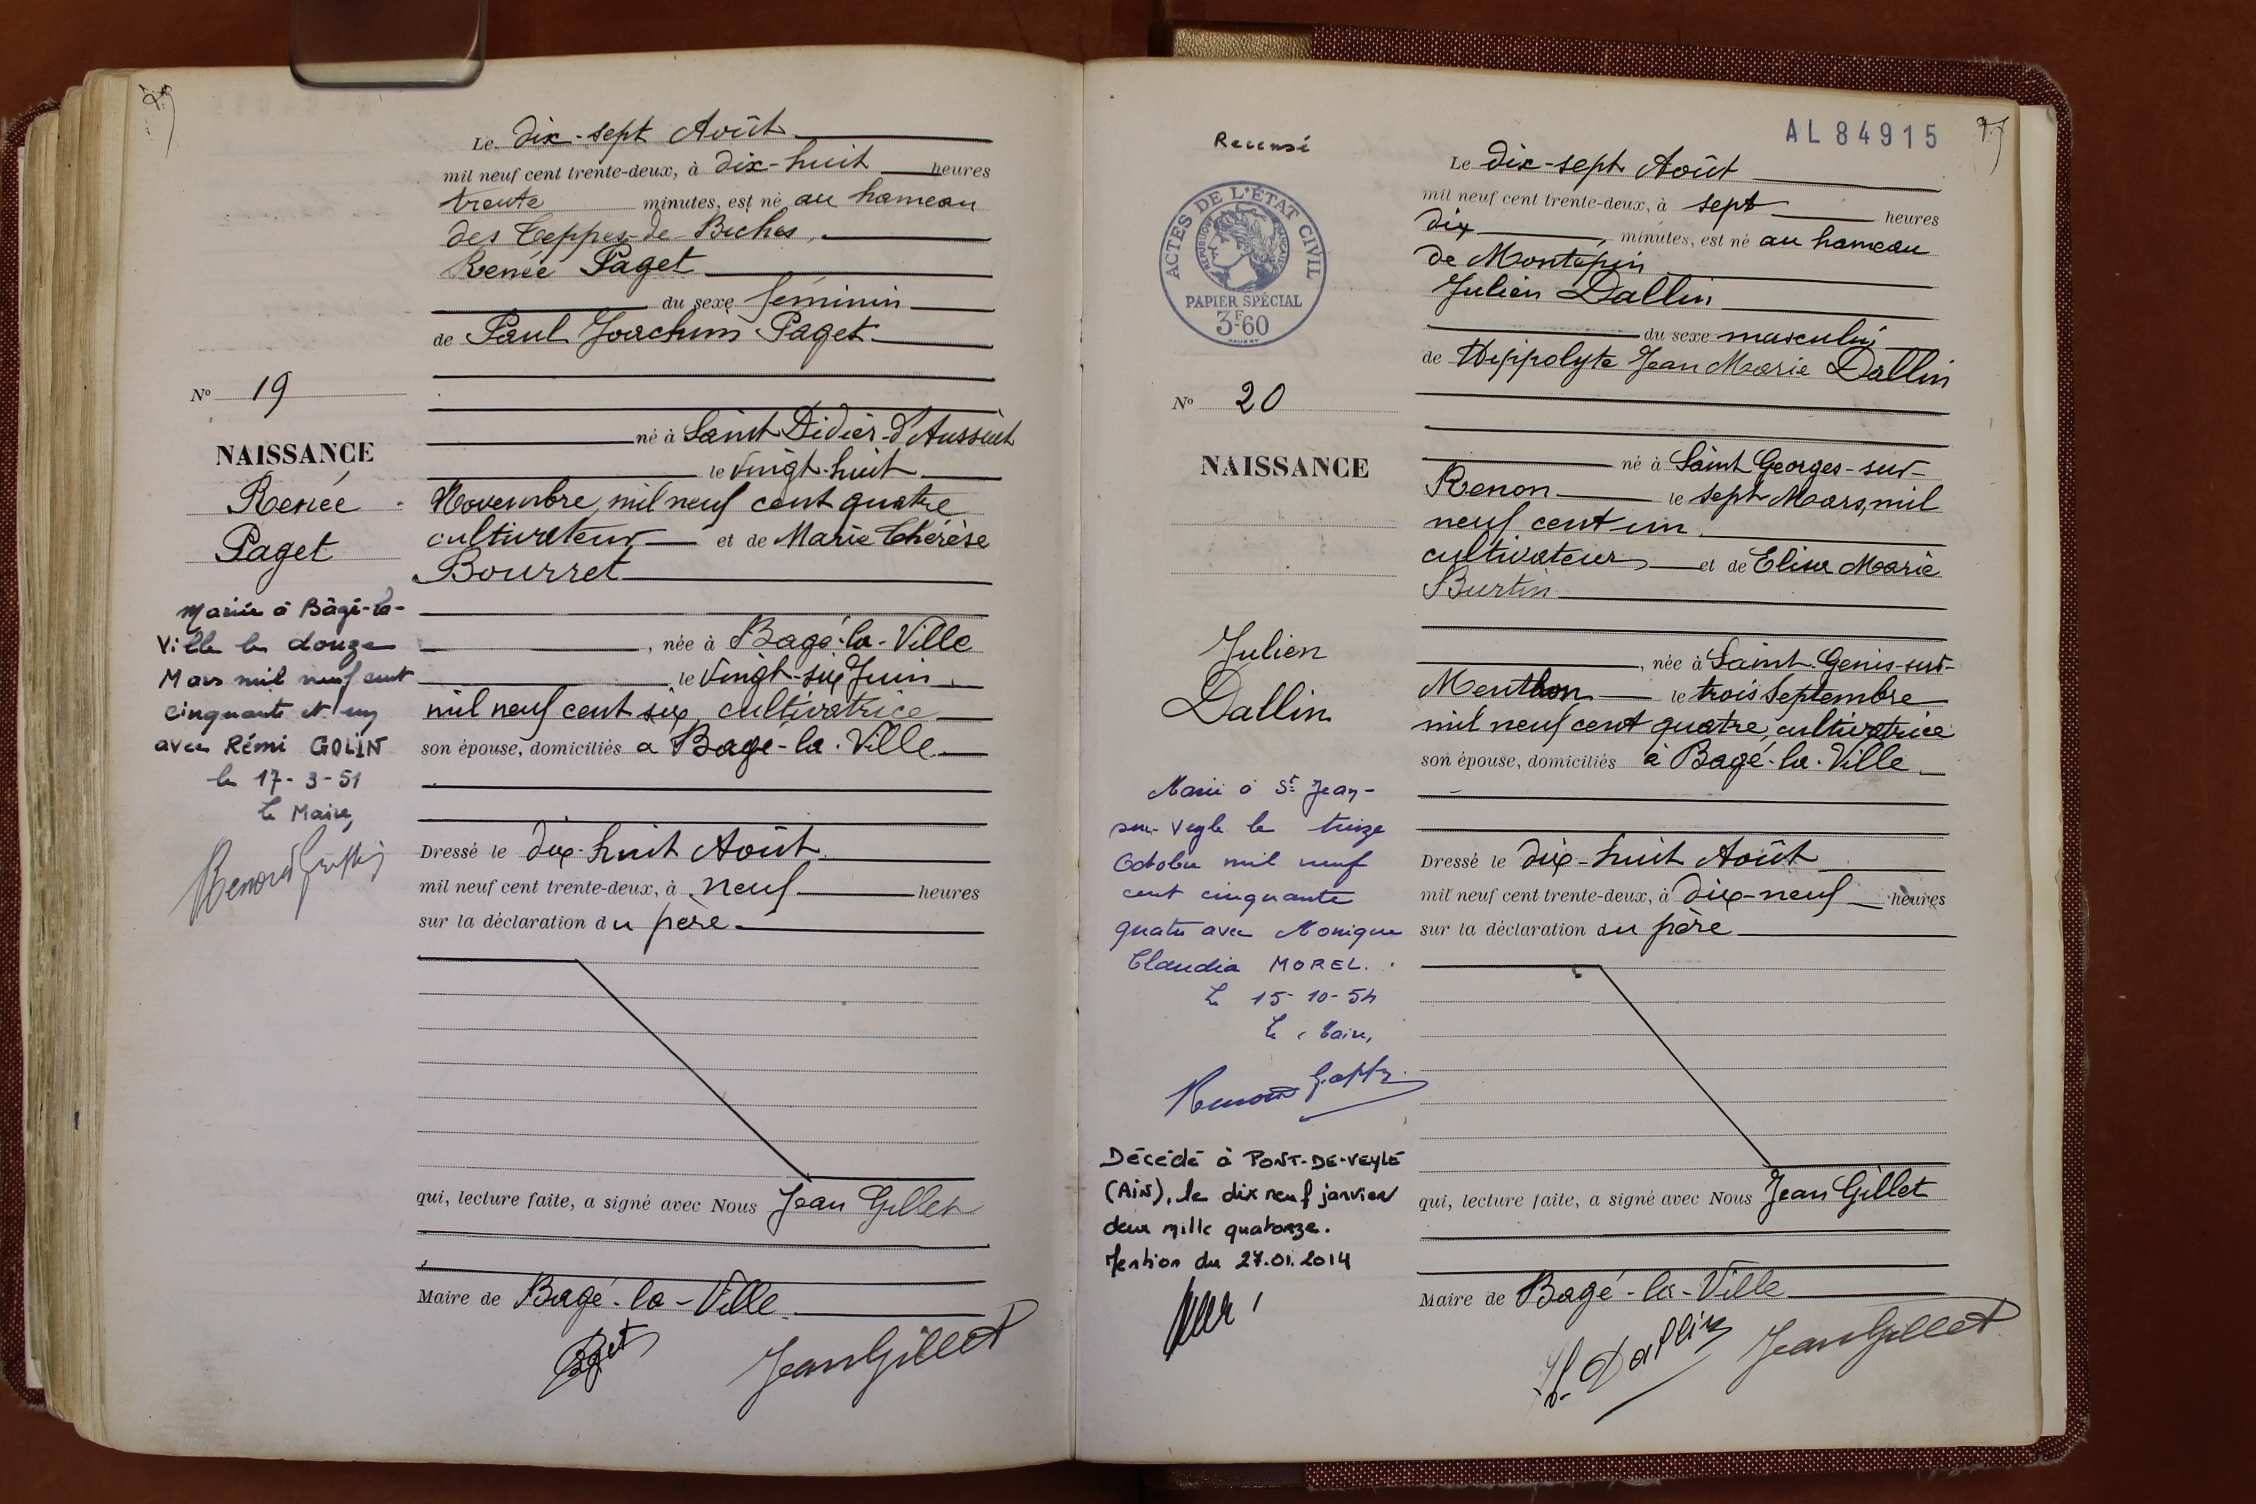 Le dix-sept Août
mil neuf cent trente-deux, à dix-huit heures
trente minutes, est né au hameau
des Teppes-de Biches,
Renée Paget
du sexe féminin
de Paul Joachim Paget
né à Saint Didier-d'Aussiat
le vingt-huit
Novembre mil neuf cent quatre
cultivateur et de Marie Thérèse
Bourret
, née à Bagé-la-Ville
le vingt-six Juin
mil neuf cent six, cultivatrice
son épouse, domiciliés à Bagé-la-Ville
Dressé le dix-huit Août
mil neuf cent trente-deux, à neuf heures
sur la déclaration du père
qui, lecture faite, a signé avec Nous Jean Gillet
Maire de Bagé-la-Ville
Paget
Jean Gillet
No 19
NAISSANCE
Renée
Paget
Mariée à Bâgé-la-
Ville le douze
Mars mil neuf cent
cinquante et un
avec Rémi GOLIN
le 17-3-51
Le Maire,
AL 84915
Recensé
ACTES DE L'ÉTAT CIVIL
RÉPUBLIQUE FRANÇAISE
PAPIER SPÉCIAL
3F60
No 20
NAISSANCE
Julien
Dallin
Marié à St Jean-
sur-Veyle le treize
Octobre mil neuf
cent cinquante
quatre avec Monique
Claudia MOREL.
Le 15-10-54
Le Maire,
Décédé à PONT-DE-VEYLE
(AIN), le dix neuf janvier
deux mille quatorze.
Mention du 27.01.2014
Le dix-sept Août
mil neuf cent trente-deux, à sept heures
dix minutes, est né au hameau
de Montépin
Julien Dallin
du sexe masculin
de Hippolyte Jean Marie Dallin
né à Saint Georges-sur-
Renon le sept Mars, mil
neuf cent un
cultivateur et de Elisa Marie
Burtin
, née à Saint Genis-sur-
Menthon le trois Septembre
mil neuf cent quatre, cultivatrice
son épouse, domiciliés à Bagé-la-Ville
Dressé le dix-huit Août
mil neuf cent trente-deux, à dix-neuf heures
sur la déclaration du père
qui, lecture faite, a signé avec Nous Jean Gillet
Maire de Bagé-la-Ville
H. Dallin
Jean Gillet